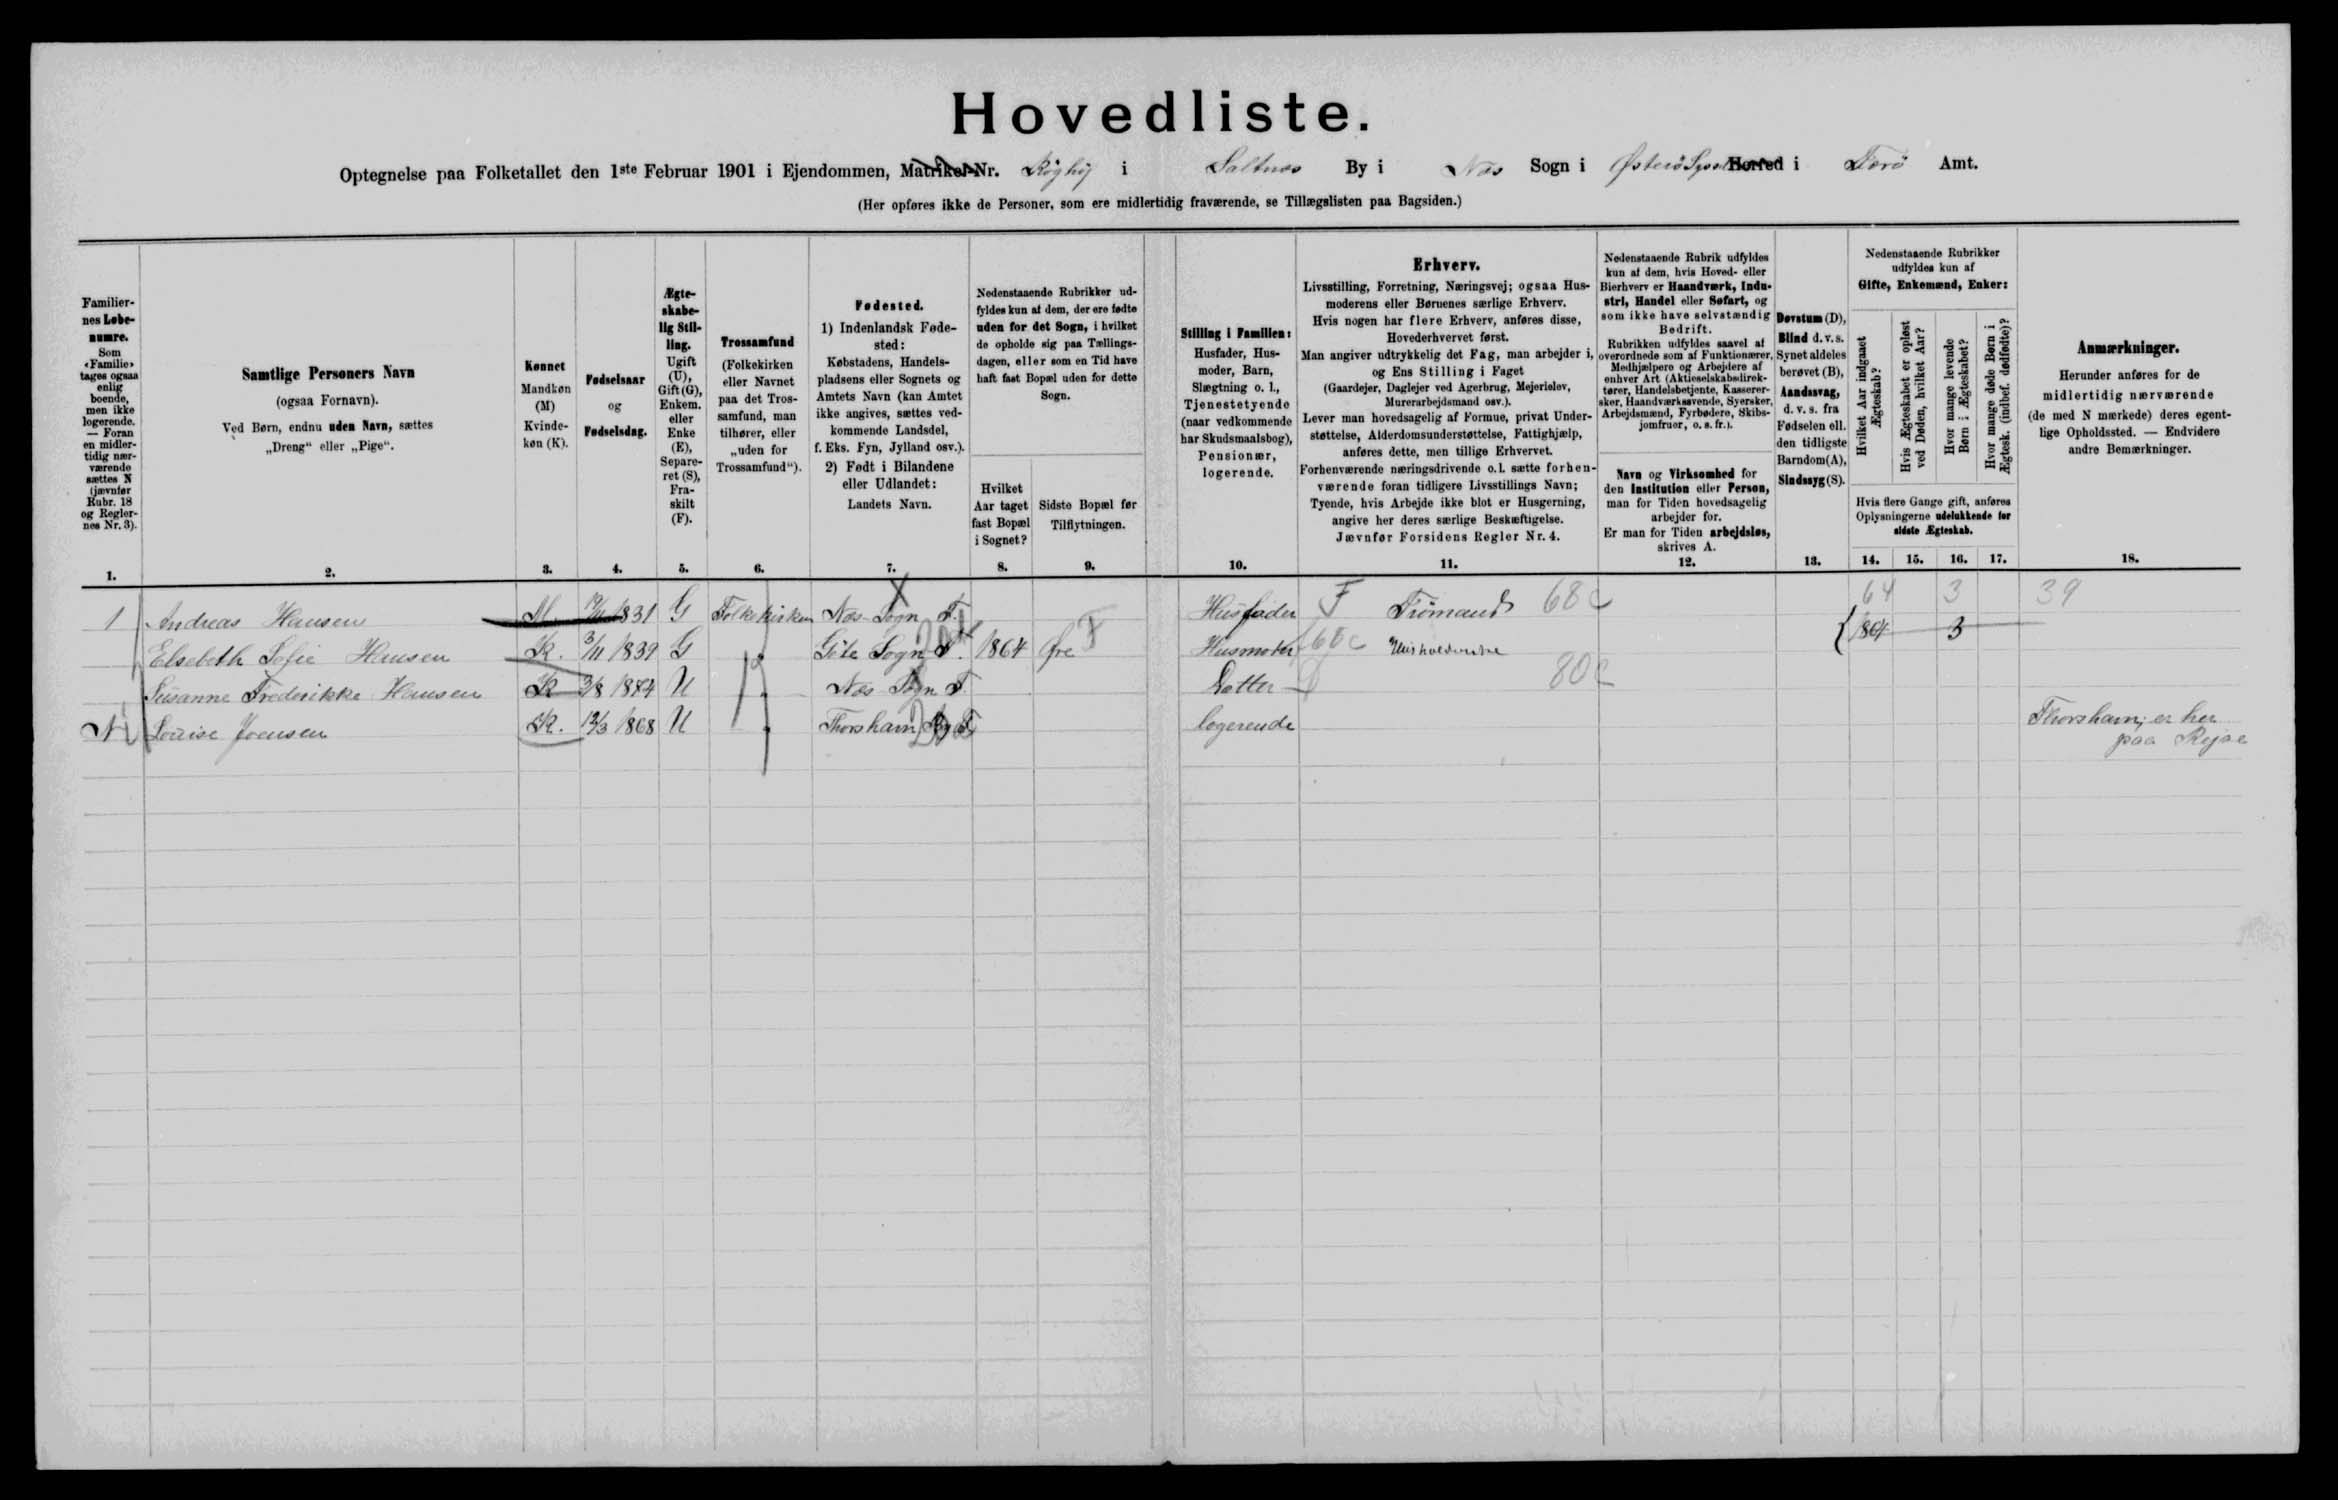 Hovedliste.
Optegnelse paa Folketallet den 1ste Februar 1901 i Ejendommen, Matrikel-Nr. Röghöj i Saltnæs By i Næs Sogn i Østerö Syssel Herred i Færö Amt.
(Her opføres ikke de Personer, som ere midlertidig fraværende, se Tillægslisten paa Bagsiden.)
Familier-
nes Løbe-
numre.
Som
«Familie»
tages ogsaa
enlig
boende,
men ikke
logerende.
— Foran
en midler-
tidig nær-
værende
sættes N
(jævnfør
Rubr. 18
og Regler-
nes Nr. 3).
1.
Samtlige Personers Navn
(ogsaa Fornavn).
Ved Børn, endnu uden Navn, sættes
„Dreng“ eller „Pige“.
2.
Kønnet
Mandkøn
(M)
Kvinde-
køn (K).
3.
Fødselsaar
og
Fødselsdag.
4.
Ægte-
skabe-
lig Stil-
ling.
Ugift
(U),
Gift (G),
Enkem.
eller
Enke
(E),
Separe-
ret (S),
Fra-
skilt
(F).
5.
Trossamfund
(Folkekirken
eller Navnet
paa det Tros-
samfund, man
tilhører, eller
„uden for
Trossamfund“).
6.
Fødested.
1) IndenlandskFøde-
sted:
Købstadens, Handels-
pladsens eller Sognets og
Amtets Navn (kan Amtet
ikke angives, sættes ved-
kommende Landsdel,
f. Eks. Fyn, Jylland osv.).
2) Født i Bilandene
eller Udlandet:
Landets Navn.
7.
Nedenstaaende Rubrikker ud-
fyldes kun af dem, der ere fødte
uden for det Sogn, i hvilket
de opholde sig paa Tællings-
dagen, eller som en Tid have
haft fast Bopæl uden for dette
Sogn.
Hvilket
Aar taget
fast Bopæl
i Sognet?
8.
Sidste Bopæl før
Tilflytningen.
9.
Stilling i Familien:
Husfader, Hus-
moder, Barn,
Slægtning o. l.,
Tjenestetyende
(naar vedkommende
har Skudsmaalsbog),
Pensionær,
logerende.
10.
Erhverv.
Livsstilling, Forretning, Næringsvej; ogsaa Hus-
moderens eller Børnenes særlige Erhverv.
Hvis nogen har flere Erhverv, anføres disse,
Hovederhvervet først.
Man angiver udtrykkelig det Fag, man arbejder i,
og Ens Stilling i Faget
(Gaardejer, Daglejer ved Agerbrug, Mejerielev,
Murerarbejdsmand osv.).
Lever man hovedsagelig af Formue, privat Under-
støttelse, Alderdomsunderstøttelse, Fattighjælp,
anføres dette, men tillige Erhvervet.
Forhenværende næringsdrivende o. l. sætte forhen-
værende foran tidligere Livsstillings Navn;
Tyende, hvis Arbejde ikke blot er Husgerning,
angive her deres særlige Beskæftigelse.
Jævnfør Forsidens Regler Nr. 4.
11.
Nedenstaaende Rubrik udfyldes
kun af dem, hvis Hoved- eller
Bierhverv er Haandværk, Indu-
stri, Handel eller Søfart, og
som ikke have selvstændig
Bedrift.
Rubrikken udfyldes saavel af
overordnede som af Funktionærer,
Medhjælpere og Arbejdere af
enhver Art (Aktieselskabsdirek-
tører, Handelsbetjente, Kasserer-
sker, Haandværkssvende, Syersker,
Arbejdsmænd, Fyrbødere, Skibs-
jomfruer, o. s. fr.).
Navn og Virksomhed for
den Institution eller Person,
man for Tiden hovedsagelig
arbejder for.
Er man for Tiden arbejdsløs,
skrives A.
12.
Døvstum (D),
Blind d. v. s.
Synet aldeles
berøvet (B),
Aandssvag,
d. v. s. fra
Fødselen ell.
den tidligste
Barndom (A),
Sindssyg (S).
13.
Nedenstaaende Rubrikker
udfyldes kun af
Gifte, Enkemænd, Enker:
Hvilket Aar indgaaet
Ægteskab?
Hvis Ægteskabet er opløst
ved Døden, hvilket Aar?
Hvor mange levende
Børn i Ægteskabet?
Hvor mange døde Børn i
Ægtesk. (indbef. dødfødte)?
Hvis flere Gange gift, anføres
Oplysningerne udelukkende for
sidste Ægteskab.
14. 15. 16. 17.
Anmærkninger.
Herunder anføres for de
midlertidig nærværende
(de med N mærkede) deres egent-
lige Opholdssted. — Endvidere
andre Bemærkninger.
18.
1 Andreas Hansen M. 1831 G Folkekirken Næs Sogn F. Husfader F Frømand 68 c 64 3 39
Elsebeth Sofie Hansen K. 3/11 1839 G Gøte Sogn F. 1864 Øre F Husmoder 68 c 1864 3
Susanne Frederikke Hansen K 3/8 1874 U Næs Sogn F. Datter 80 c
N Louise Joensen K. 12/3 1868 U Thorshavn F logerende Thorshavn; er her
paa Rejse